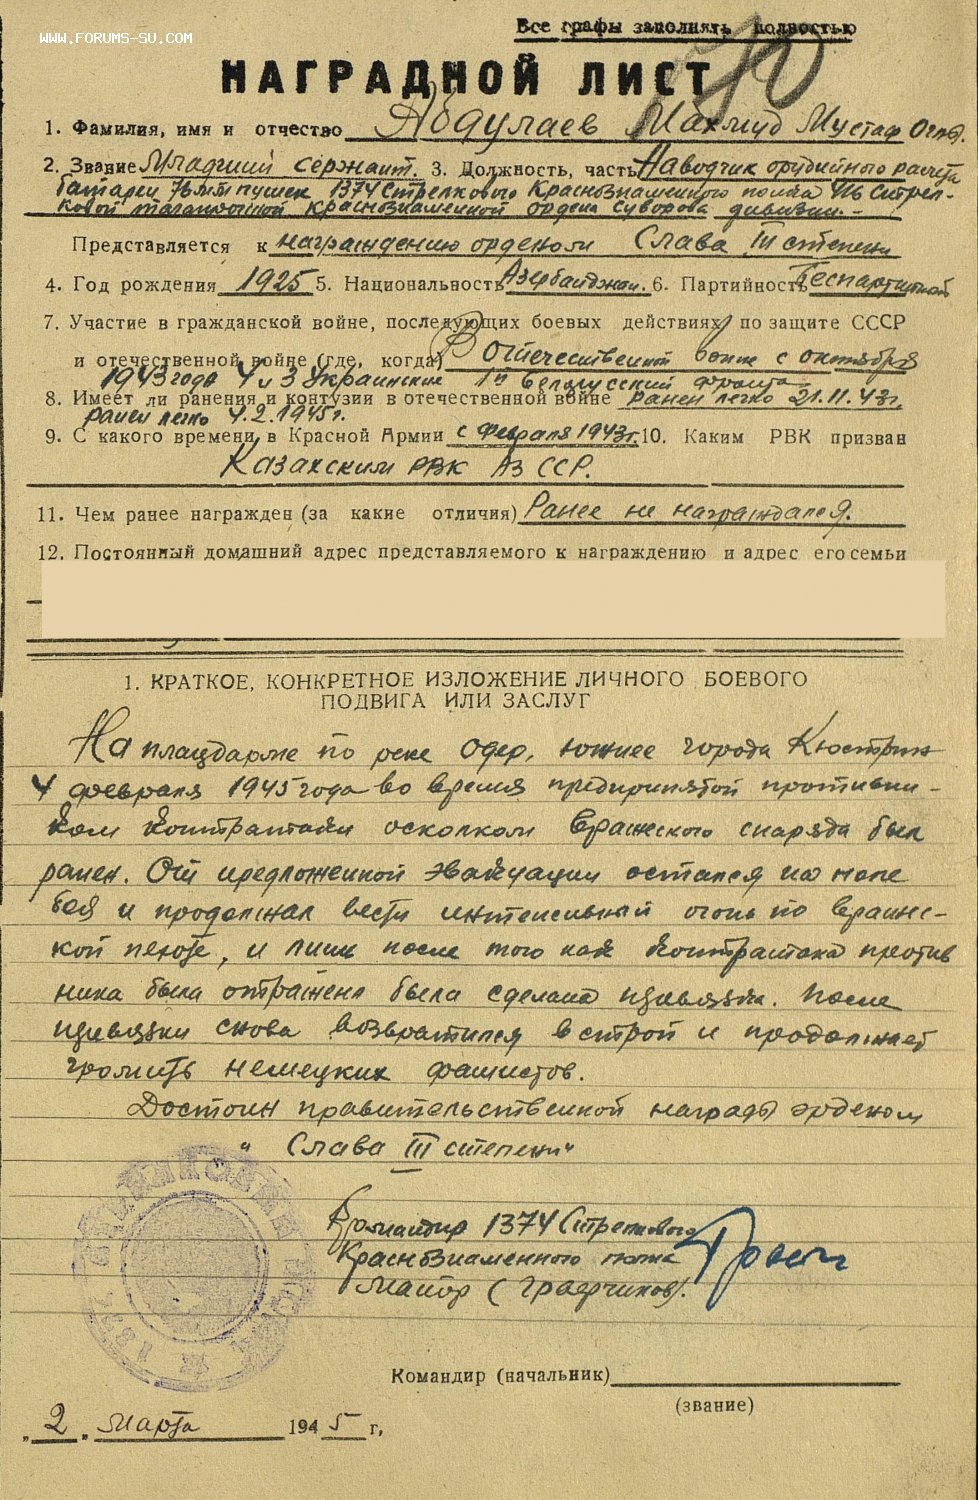 WWW.FORUMS-SU.COM
Все графы заполнять полностью
НАГРАДНОЙ ЛИСТ
1. Фамилия, имя и отчество Абдулаев Махмуд Мустаф Оглы.
2. Звание Младший сержант. 3. Должность, часть Наводчик орудийного расчета
батареи 76 мм пушек 1374 Стрелкового Краснознаменного полка 416 Стрел-
ковой таганрогской краснознаменной ордена Суворова дивизии.-
Представляется к награждению орденом Слава III степени
4. Год рождения 1925 5. Национальность Азербайджан. 6. Партийность Беспартийный
7. Участие в гражданской войне, последующих боевых действиях по защите СССР
и отечественной войне (где, когда) В отечественной войне с октября
1943 года 4 и 3 Украинские 1й Белорусский фронта
8. Имеет ли ранения и контузии в отечественной войне ранен легко 21.11.43г.
ранен легко 4.2.1945г.
9. С какого времени в Красной Армии с февраля 1943г. 10. Каким РВК призван
Казахским РВК Аз ССР.
11. Чем ранее награжден (за какие отличия) Ранее не награждался.
12. Постоянный домашний адрес представляемого к награждению и адрес его семьи
1. КРАТКОЕ, КОНКРЕТНОЕ ИЗЛОЖЕНИЕ ЛИЧНОГО БОЕВОГО
ПОДВИГА ИЛИ ЗАСЛУГ
На плацдарме по реке Одер, южнее города Кюстрин
4 февраля 1945 года во время предпринятой противни-
ком контратаки осколком вражеского снаряда был
ранен. От предложенной эвакуации остался на поле
боя и продолжал вести интенсивный огонь по вражес-
кой пехоте, и лишь после того как контратака против
ника была отражена была сделана перевязка. После
перевязки снова возвратился в строй и продолжает
громить немецких фашистов.
Достоин правительственной награды орденом
" Слава III степени"
Командир 1374 Стрелкового
Краснознаменного полка
Майор (
Командир (начальник)
(звание)
„ 2 „ марта 1945 г.